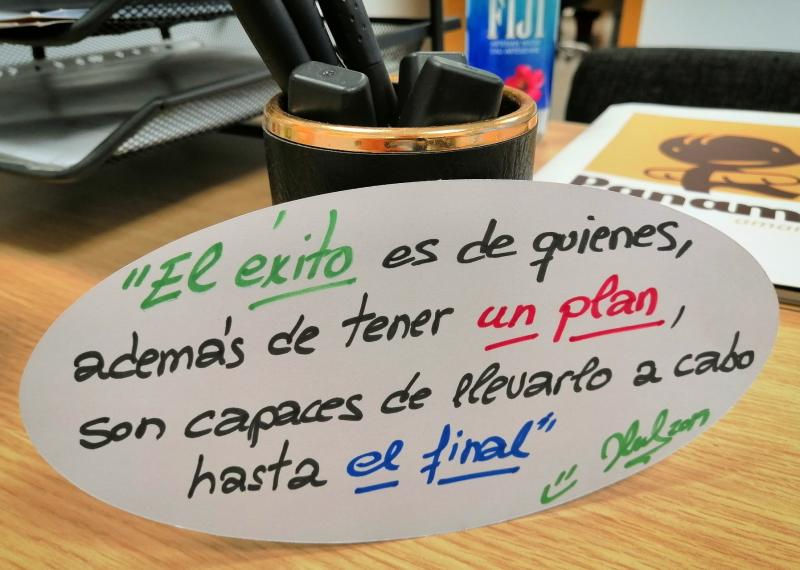 FIJI
Panam
"El éxito es de quienes,
además de tener un plan,
son capaces de llevarlo a cabo
hasta el final"